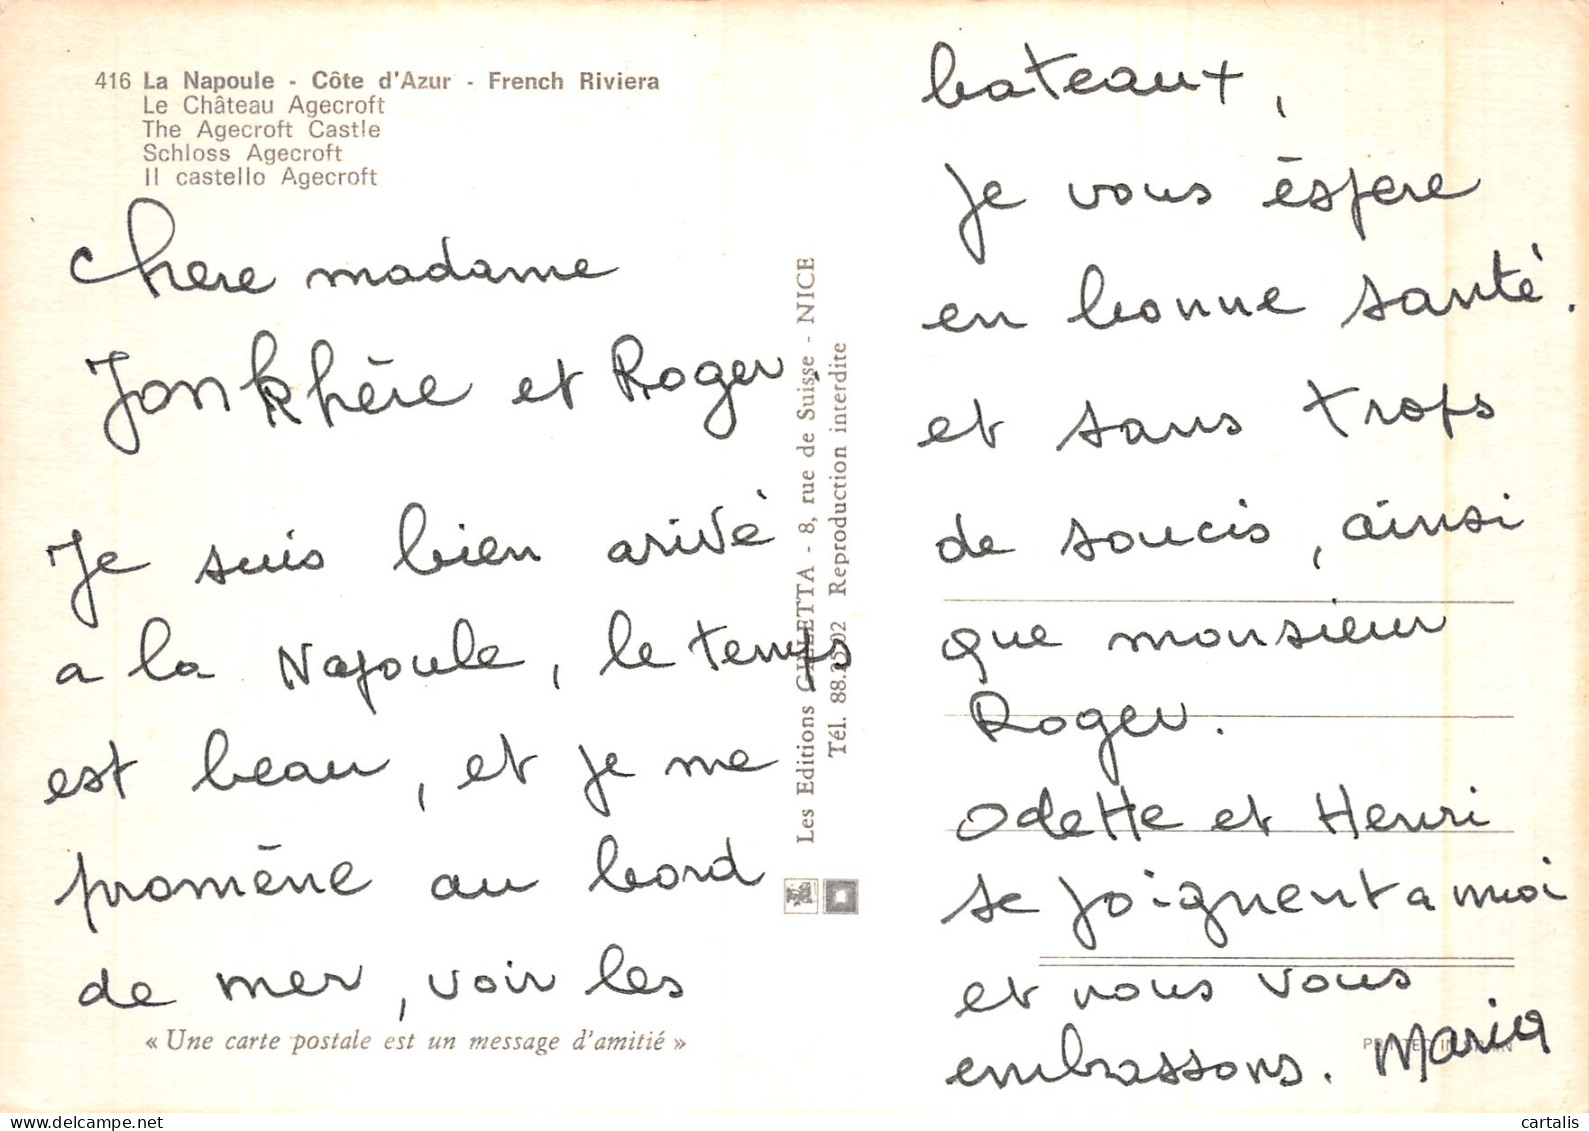 416 La Napoule - Côte d'Azur - French Riviera
Le Château Agecroft
The Agecroft Castle
Schloss Agecroft
Il castello Agecroft
chere madame
Jonkhère et Roger.
Je suis bien arivé
a la Napoule, le temps
est beau, et je me
promène au bord
de mer, voir les
« Une carte postale est un message d'amitié »
Les Editions GILETTA - 8, rue de Suisse - NICE
Tél. Reproduction interdite
bateaux,
Je vous éspere
en bonne santé.
et sans trops
de soucis, ainsi
que monsieur
Roger.
Odette et Henri
se joignent a moi
et nous vous
embrassons. Maria
PRINTED IN SPAIN
cartalis